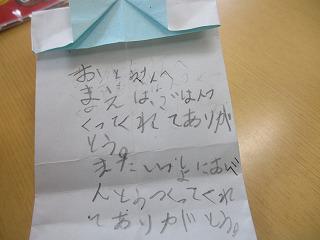 まえは、ごはん
つくってくれてありが
とう。
またいっしょにおべ
んとうつくってくれ
てありがとう。